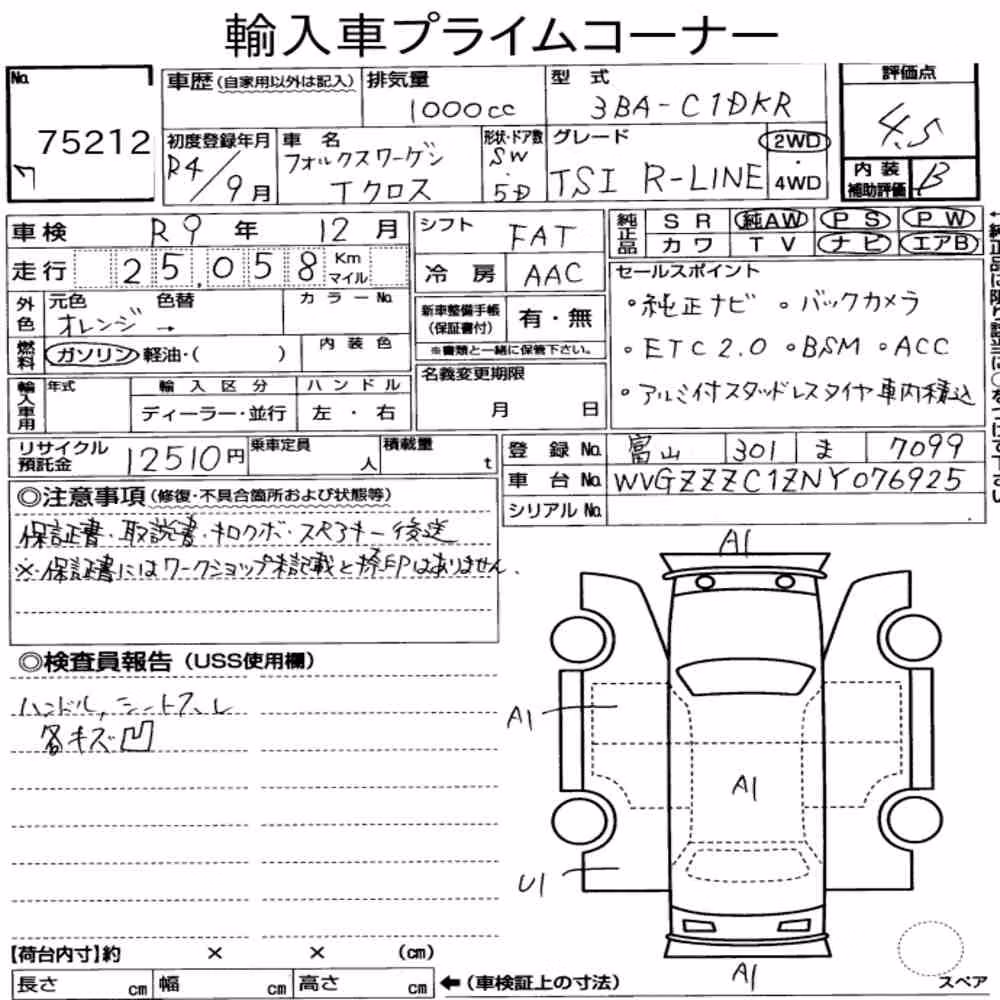 輸入車プライムコーナー
No. 75212
車歴(自家用以外は記入)
排気量 1000cc
型式 3BA-C1DKR
評価点 4.5
初度登録年月 R4/9月
車名 フォルクスワーゲン Tクロス
形状・ドア数 SW・5D
グレード TSI R-LINE
2WD・4WD
内装補助評価 B
車検 R9年 12月
走行 25,058 Km マイル
シフト FAT
冷房 AAC
純正品 SR 純AW PS PW
カワ TV ナビ エアB
外色 元色 オレンジ→ 色替 カラーNo.
燃料 ガソリン・軽油・( ) 内装色
新車整備手帳(保証書付) 有・無
※書類と一緒に保管下さい。
セールスポイント
・純正ナビ ・バックカメラ
・ETC2.0 ・BSM ・ACC
・アルミ付スタッドレスタイヤ車内積込
輸入車用 年式 輸入区分 ハンドル
ディーラー・並行 左・右
名義変更期限 月 日
リサイクル預託金 12510円
乗車定員 人
積載量 t
登録No. 富山 301 ま 7099
車台No. WVGZZZC1ZNY076925
シリアルNo.
◎注意事項(修復・不具合箇所および状態等)
保証書・取説書・キロクボ・スペアキー後送
※保証書にはワークショップ未記載と捺印はありません.
◎検査員報告(USS使用欄)
ハンドル, シートスレ
各キズ凹
A1
A1
A1
U1
A1
【荷台内寸】約 × × (cm)
長さ cm 幅 cm 高さ cm ←(車検証上の寸法)
スペア